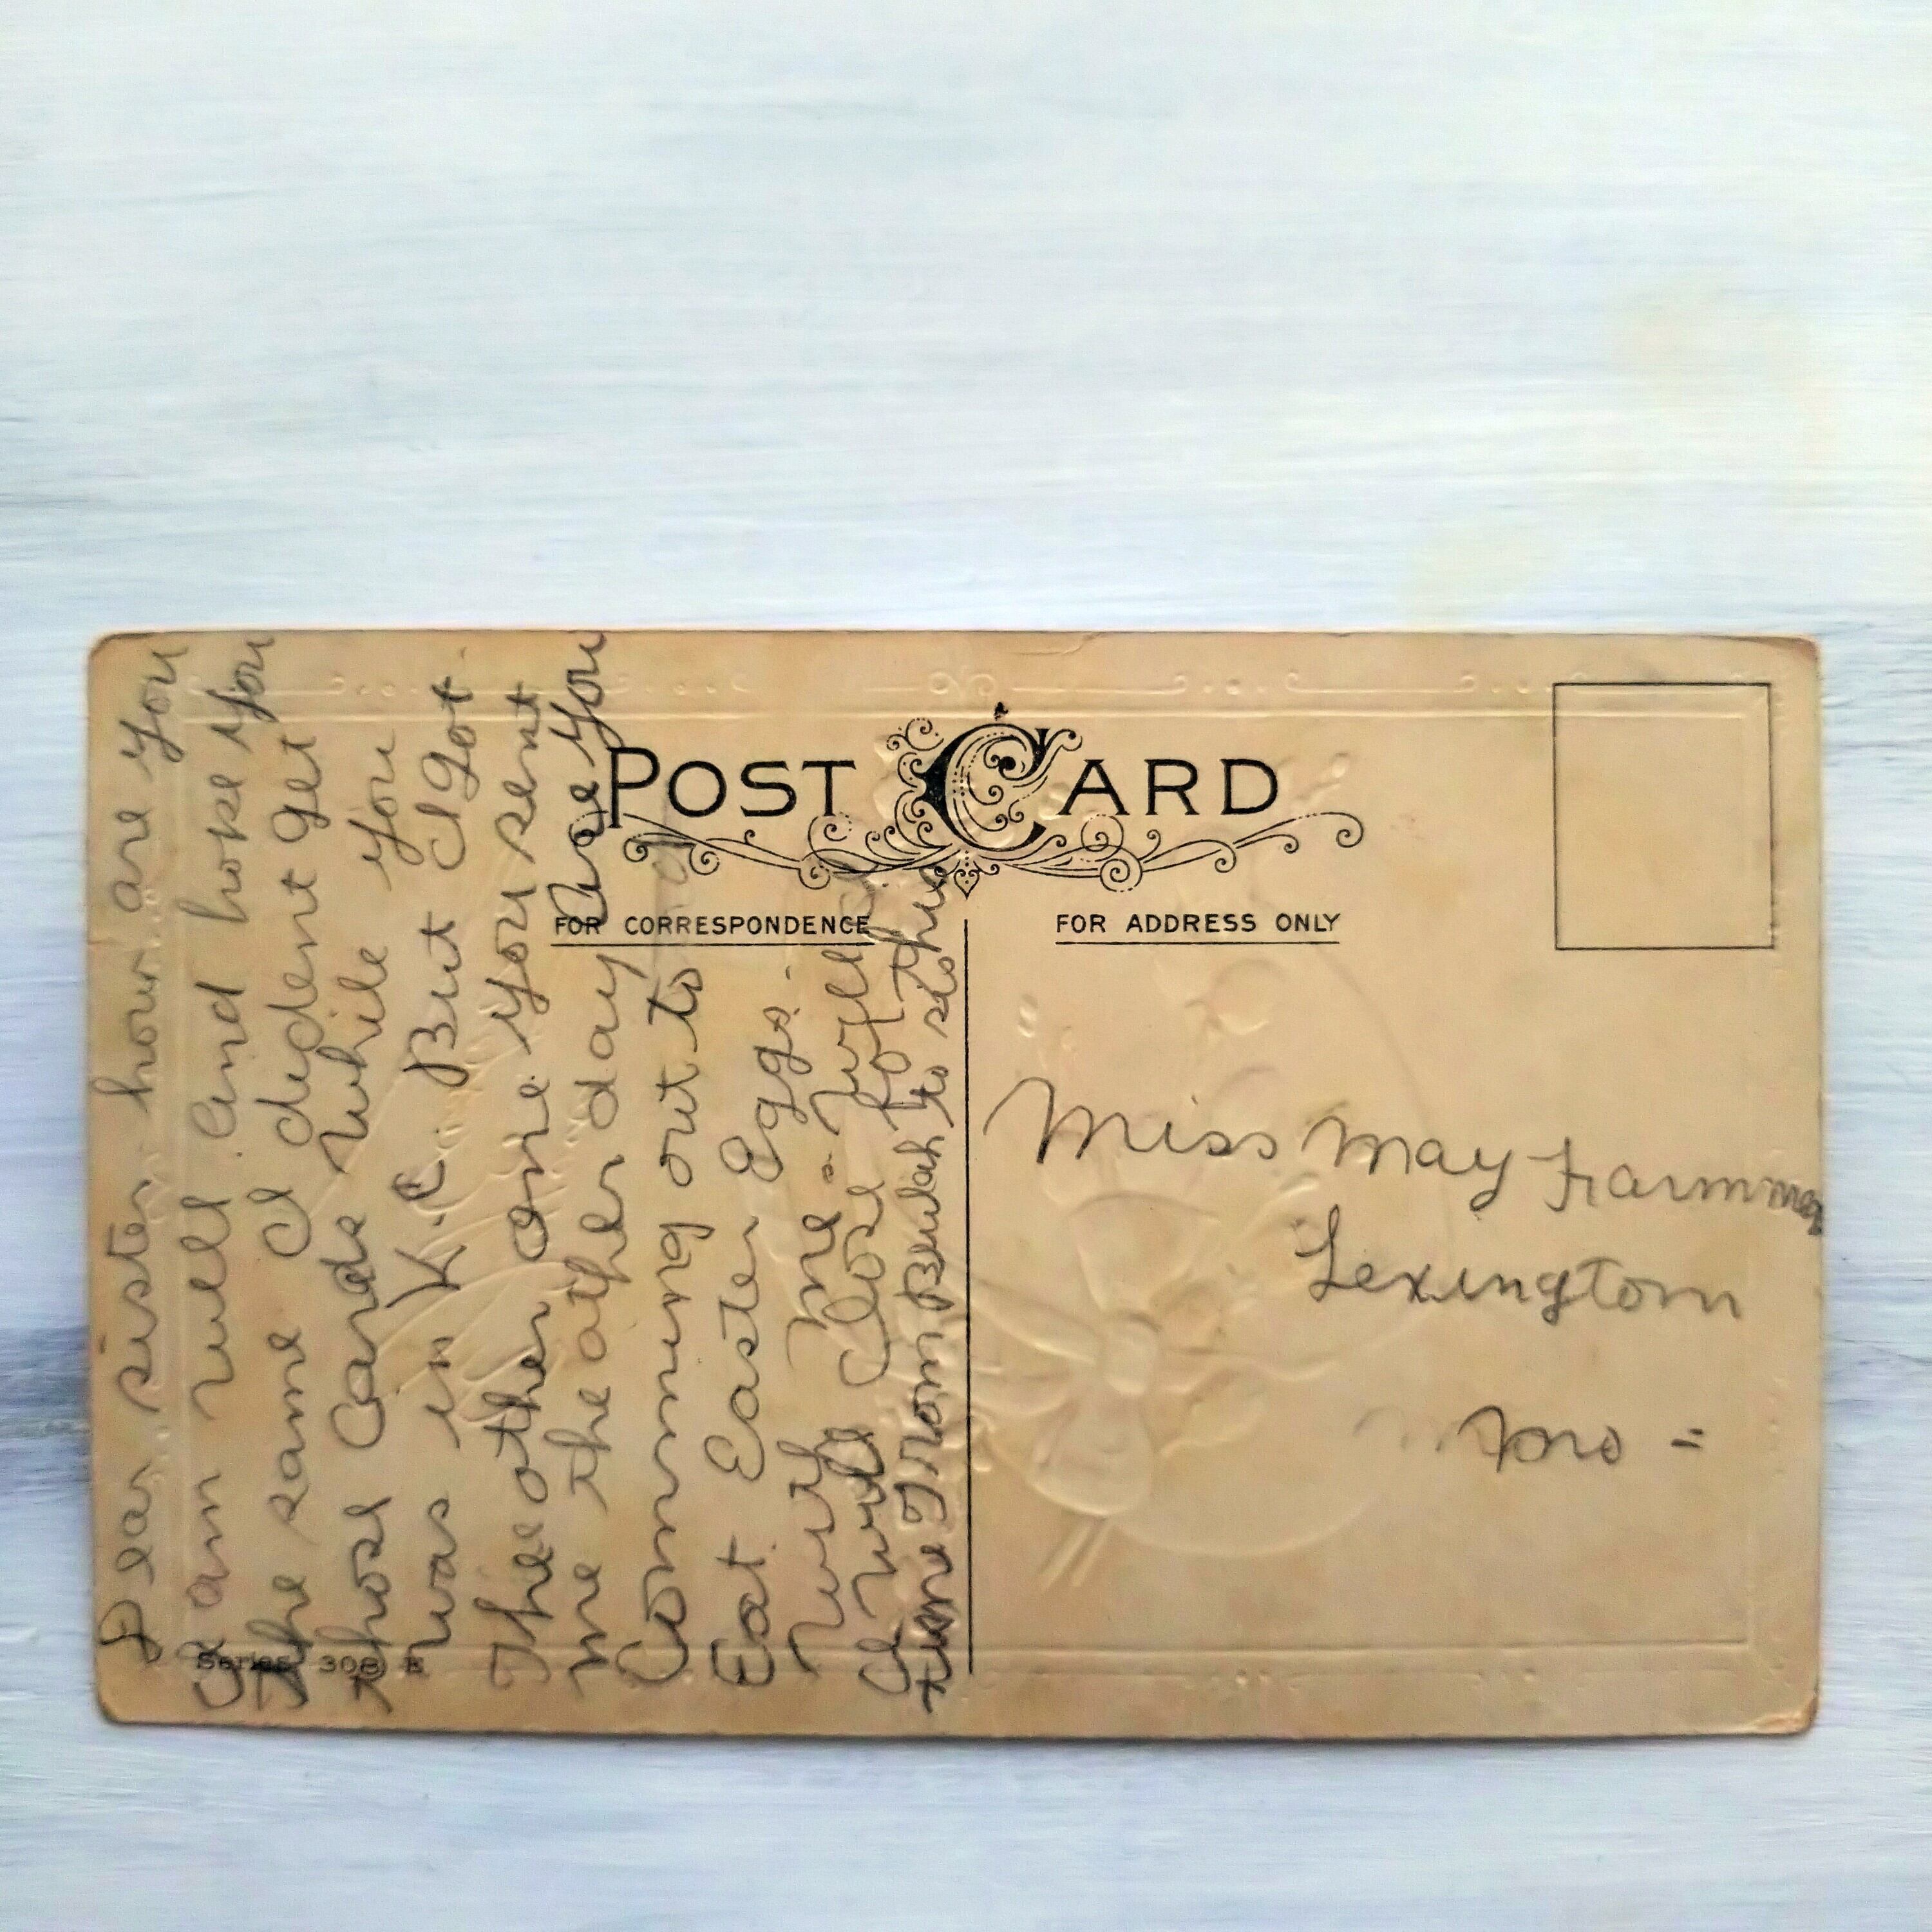 POST CARD
FOR CORRESPONDENCE
FOR ADDRESS ONLY
Dear sister how are you
I am well and hope you
the same I dident get
those Cards while you
was in K.C. But I got
The other one you sent
me the other day Are you
Comming out to
Eat Easter Eggs.
with me. well
I will Close for this
time From Beulah to sis
Miss May
Lexington
Mo =
Series 308 E